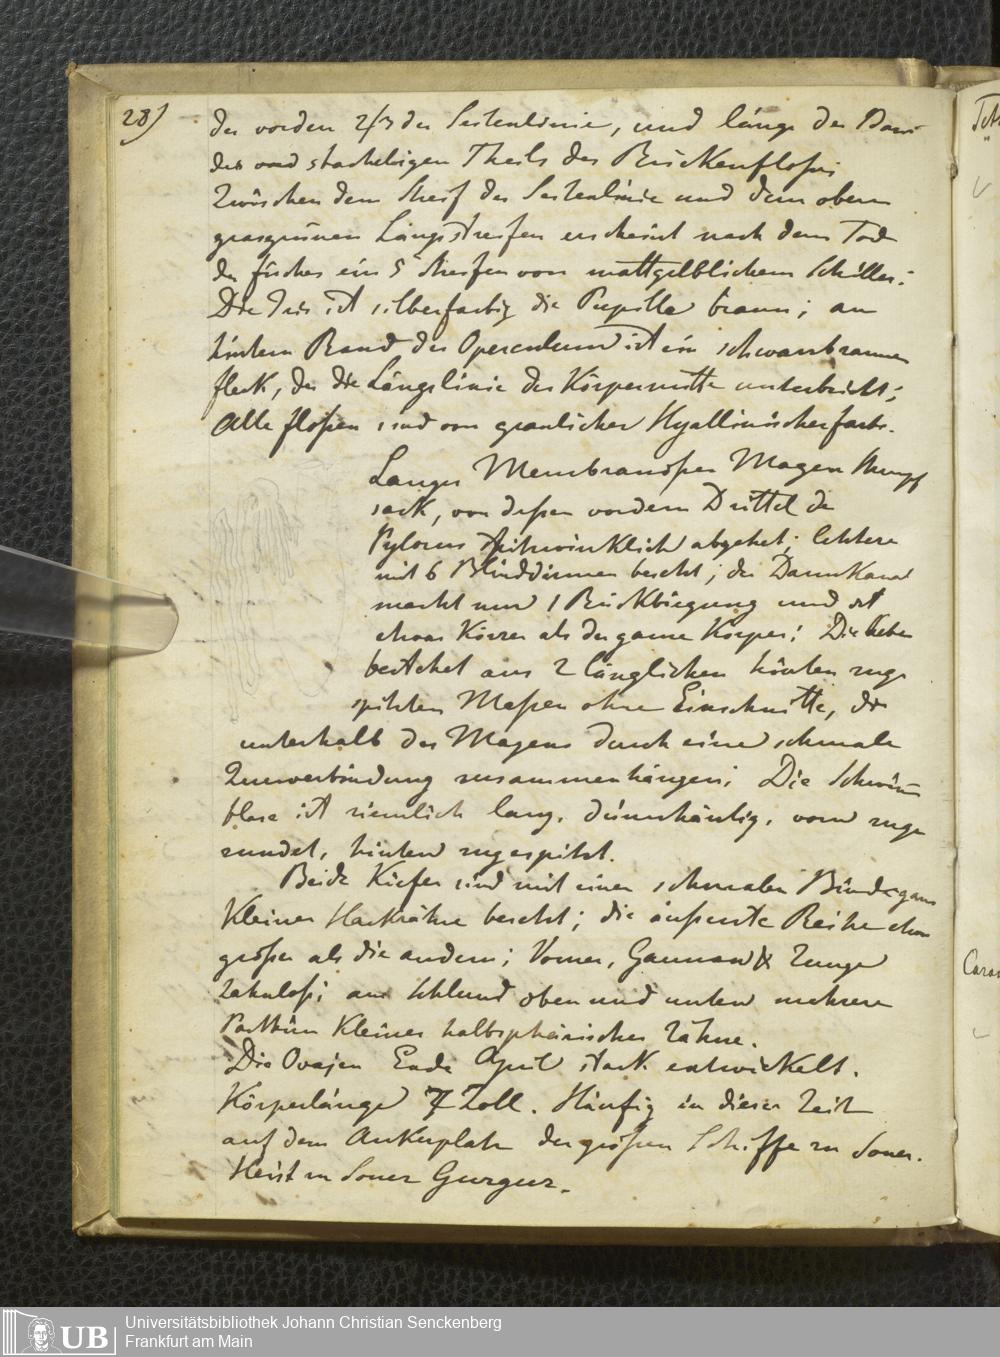 28)
der vordern 2/3 der Seitenlinie, und längs der Basis
des stachelichen Theils der Rückenfloße;
Zwischen dem Streif der Seitenlinie und dem obern
grasgrünen Längsstreifen erscheint nach dem Tode
des Fisches ein 5 Streifen von mattgelblichem Schiller.
Die Iris ist silberfarbig die Pupille braun; am
hintern Rand des Operculum ist ein schwarzbrauner
fleck, der die Längslinie der Körpermitte unterbricht;
Alle floßen sind von graulicher Hyallinischerfarbe.
Langer Membranoser Magen Stumpf
sack, von deßen vordern Drittel der
Pylorus spitzwinklich abgehet; letztere
mit 6 Blinddärmen besetzt; der Darmkanal
macht nur 1 Rückbiegung und ist
etwas Kürzer als der ganze Körper; Die Leber
bestehet aus 2 länglichen hinten zuge
spitzten Maßen ohne Einschnitte, die
unterhalb des Magens durch eine schmale
Querverbindung zusammenhängen; Die Schwim̄
blase ist ziemlich lang, dünnhäutig, vorn zuge
rundet, hinten zugespitzt.
Beide Kiefer sind mit einer schmalen Binde ganz
Kleiner Hackzähne besetzt; die äußerste Reihe etwas
größer als die andern; Vomer, Gaumen & Zunge
zahnloß; am Schlund oben und unten mehrere
Parthien Kleiner halbsphärischer Zähne.
Die Ovarien Ende April stark entwickelt.
Körperlänge 7 Zoll. Häufig in dieser Zeit
auf dem Ankerplatz der großen Schiffe zu Souez.
Heist in Souez Gurgur.
Caran
UB
Universitätsbibliothek Johann Christian Senckenberg
Frankfurt am Main